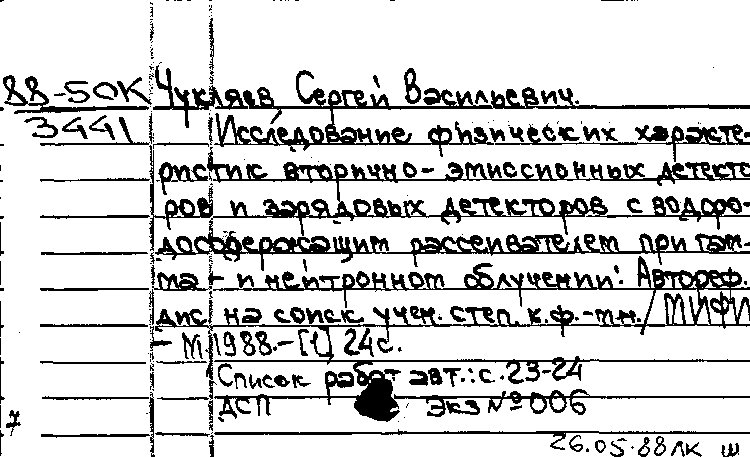 88-50К Чукляев Сергей Васильевич.
3441 Исследование физических характе-
ристик вторично-эмиссионных детекто
ров и зарядовых детекторов с водоро-
досодержащим рассеивателем при гам-
ма- и нейтронном облучении: Автореф.
дис на соиск. учен. степ. к.ф.-м.н./МИФИ
- М, 1988.-[1], 24с.
Список работ авт.: с.23-24
ДСП Экз №006
7
26.05.88 ЛК Ш